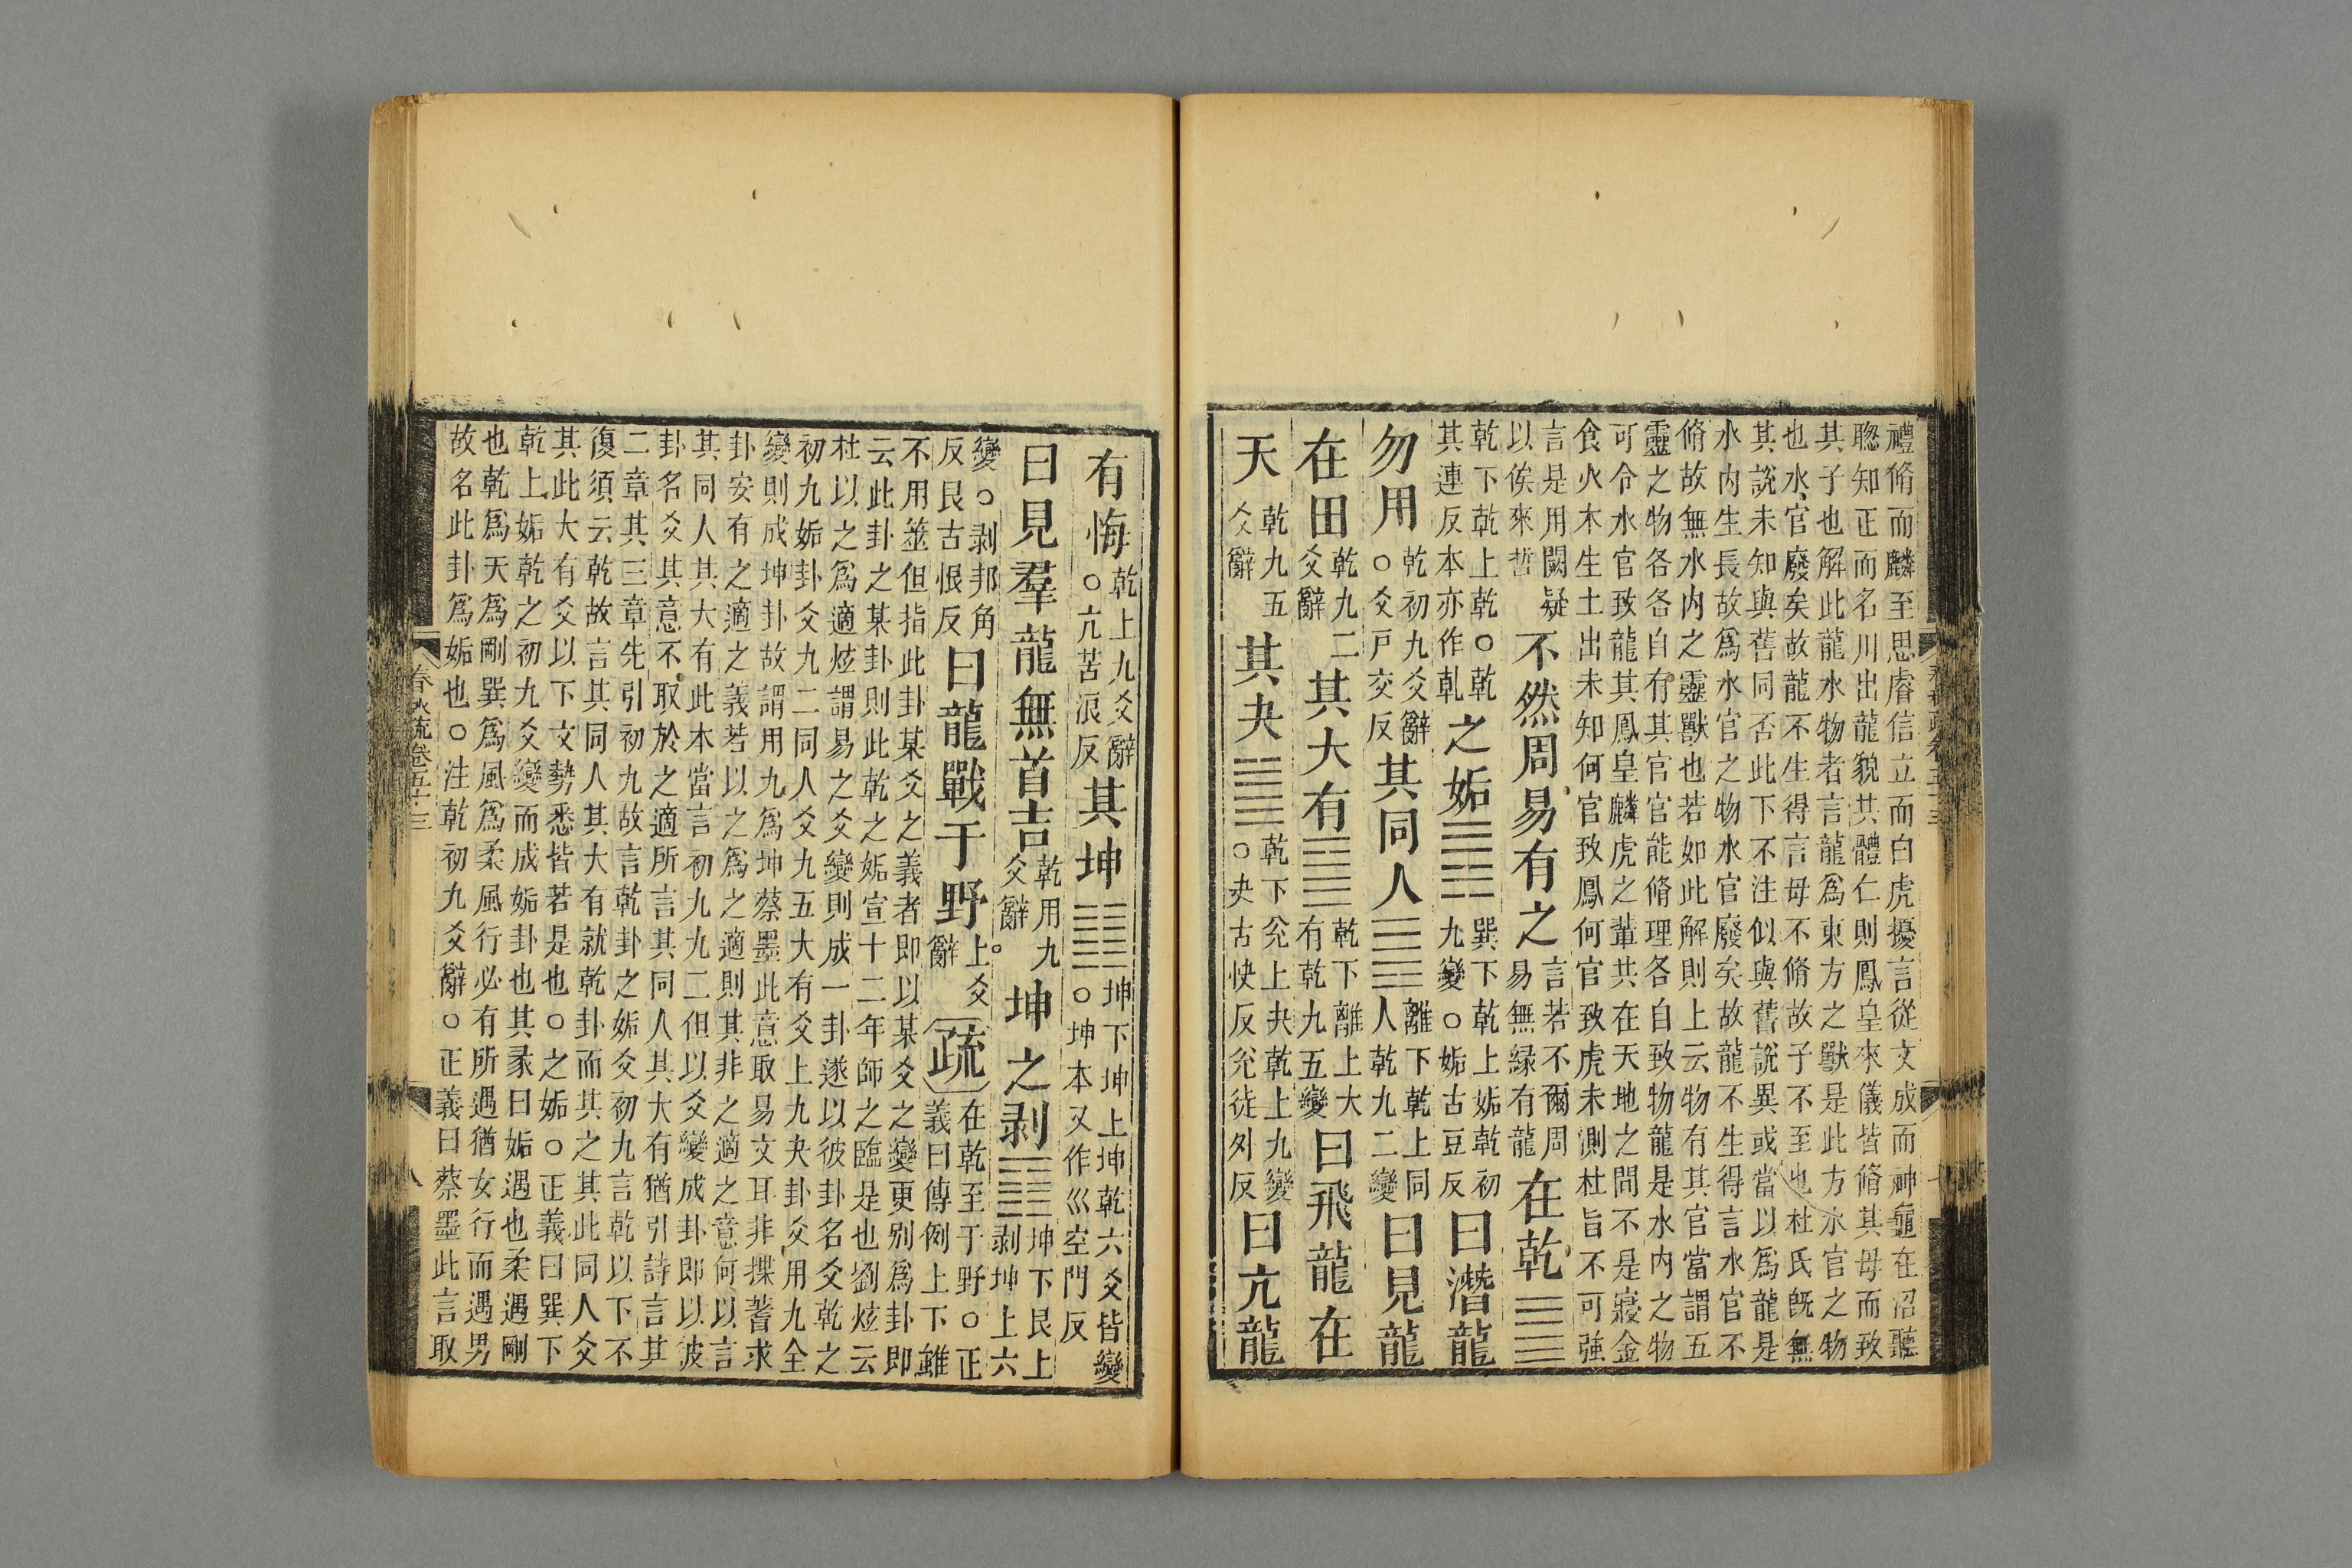 禮脩而麟至思睿信立而白虎擾言從文成而神龜在沼聽
聰知正而名川出龍貌共體仁則鳳皇來儀皆脩其母而致
其子也解此龍水物者言龍爲東方之獸是此方水官之物
也水官廢矣故龍不生得言母不脩故子不至也杜氏旣無
其說未知與舊同否此下不注似與舊說異或當以爲龍是
水內生長故爲水官之物水官廢矣故龍不生得言水官不
脩故無水內之靈獸也若如此解則上云物有其官當謂五
靈之物各各自有其官官能脩理各自致物龍是水內之物
可令水官致龍其鳳皇麟虎之輩共在天地之間不是寢金
食火木生土出未知何官致鳳何官致虎未測杜旨不可強
言是用闕疑
以俟來哲
不然周易有之
言若不爾周
易無緣有龍
在乾䷀
乾下乾上乾○乾
其連反本亦作乹
之姤䷫
巽下乾上姤乾初
九變○姤古豆反
曰潛龍
勿用
乾初九爻辭
○爻戸交反
其同人䷌
離下乾上同
人乾九二變
曰見龍
在田
乾九二
爻辭
其大有䷍
乾下離上大
有乾九五變
曰飛龍在
天
乾九五
爻辭
其夬䷪
乾下兊上夬乾上九變
○夬古快反兊徒外反
曰亢龍
有悔
乾上九爻辭
○亢苦浪反
其坤䷁
坤下坤上坤乾六爻皆變
○坤本又作巛空門反
曰見羣龍無首吉
乾用九
爻辭
坤之剥䷖
坤下艮上
剥坤上六
變○剥邦角
反艮古恨反
曰龍戰于野
上爻
辭
疏
在乾至于野○正
義曰傳例上下雖
不用筮但指此卦某爻之義者即以某爻之變更别爲卦即
云此卦之某卦則此乾之姤宣十二年師之臨是也劉炫云
杜以之爲適炫謂易之爻變則成一卦遂以彼卦名爻乾之
初九姤卦爻九二同人爻九五大有爻上九夬卦爻用九全
變則成坤卦故謂用九爲坤蔡墨此意取易文耳非揲蓍求
卦安有之適之義若以之爲之適則其非之適之意何以言
其同人其大有此本當言初九九二但以爻變成卦即以彼
卦名爻其意不取於之適所言其同人其大有猶引詩言其
二章其三章先引初九故言乾卦之姤爻初九言乾以下不
復須云乾故言其同人其大有就乾卦而其之其此同人爻
其此大有爻以下文勢悉皆若是也○之姤○正義曰巽下
乾上姤乾之初九爻變而成姤卦也其彖曰姤遇也柔遇剛
也乾爲天爲剛巽爲風爲柔風行必有所遇猶女行而遇男
故名此卦爲姤也○注乾初九爻辭○正義曰蔡墨此言取
春秋疏卷五十三
八